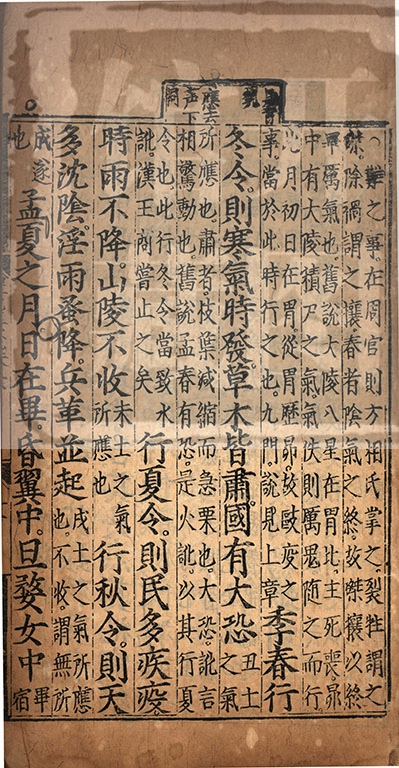 難之事在周官則方相氏掌之裂牲謂之
磔除禍謂之禳春者陰氣之終故磔禳以終
畢厲氣也舊說大陵八星在胃北主死喪昴
中有大陵積尸之氣氣佚則厲鬼随之而行
此月初日在胃從胃歷昴故敺疫之
事當於此時行之也九門說見上章
季春行
冬令則寒氣時發草木皆肅國有大恐
丑土
之氣
所應也肅者枝葉減縮而急栗也大恐訛言
相驚動也舊說孟春有恐是火訛以其行夏
令也此行冬令當致水
訛漢王商嘗止之矣
行夏令則民多疾疫
時雨不降山陵不收
未土之氣
所應也
行秋令則天
多沈陰淫雨蚤降兵革並起
戌土之氣所應
也不收謂無所
成遂
也
孟夏之月日在畢昏翼中旦婺女中
畢
宿
應去
聲下